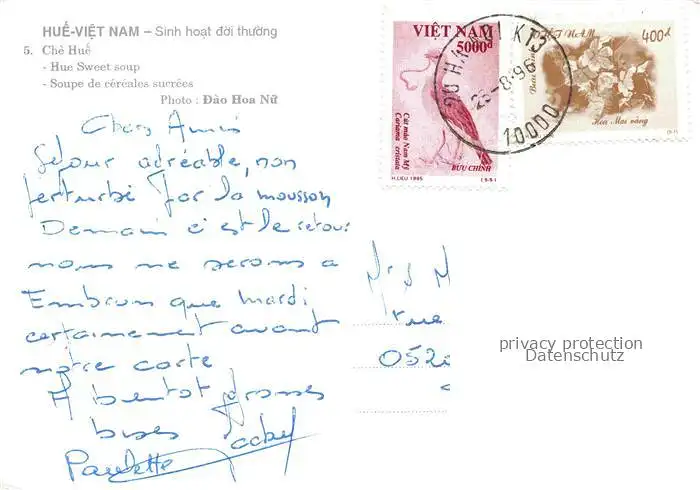 HUẾ-VIỆT NAM – Sinh hoạt đời thường
5. Chè Huế
- Hue Sweet soup
- Soupe de céréales sucrées
Photo : Đào Hoa Nữ
VIỆT NAM
5000đ
Cát mào Nam Mỹ
Cariama cristata
BƯU CHÍNH
H.LIEU 1995
VIỆT NAM
400đ
Bưu chính
Hoa Mai vàng
26-8-96
10000
Chers Amis
Séjour agréable, non
perturbé par la mousson
Demain c'est le retour
nous ne serons a
Embrun que Mardi
certainement avant
notre carte
A bientot grosses
bises Jacky
Paulette
Mrs M
rue
052
privacy protection
Datenschutz